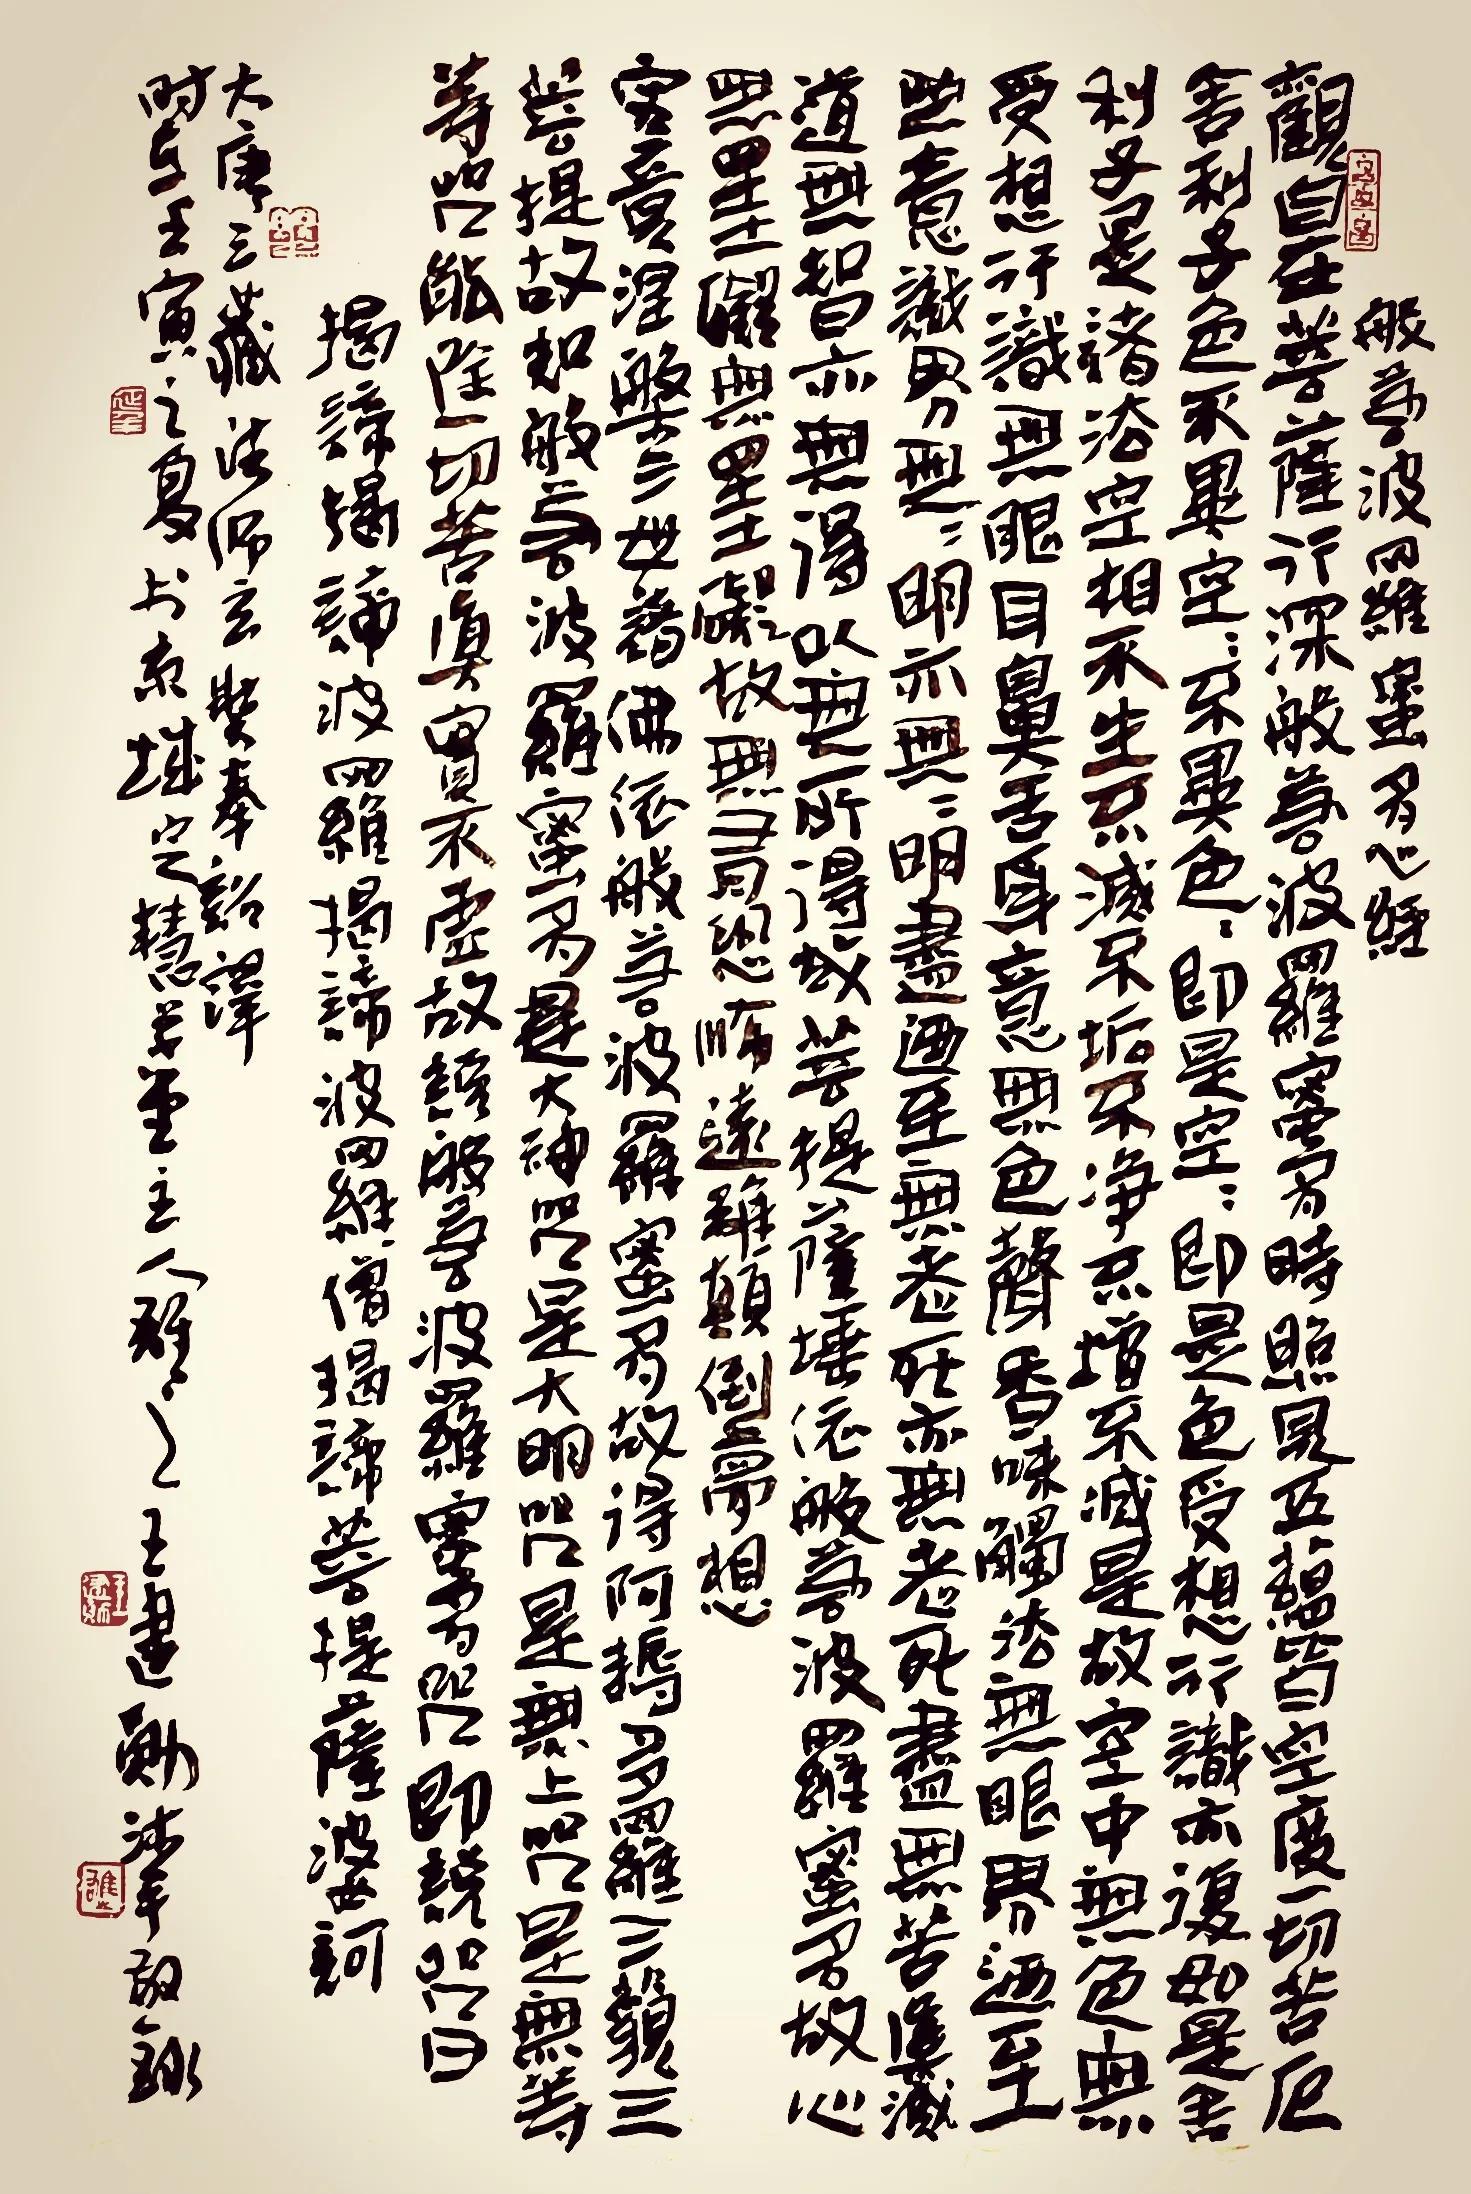 般若波羅蜜多心經
觀自在菩薩行深般若波羅蜜多時照見五蘊皆空度一切苦厄
舍利子色不異空〻不異色〻即是空〻即是色受想行識亦復如是舍
利子是諸法空相不生不滅不垢不淨不增不減是故空中無色無
受想行識無眼耳鼻舌身意無色聲香味觸法無眼界迺至
無意識界無〻明亦無〻明盡迺至無老死亦無老死盡無苦集滅
道無智亦無得以無所得故菩提薩埵依般若波羅蜜多故心
無罣礙無罣礙故無有恐怖遠離顛倒夢想
究竟涅槃三世諸佛依般若波羅蜜多故得阿耨多羅三藐三
菩提故知般若波羅蜜多是大神咒是大明咒是無上咒是無等
等咒能除一切苦真實不虛故說般若波羅蜜多咒即說咒曰
揭諦揭諦波羅揭諦波羅僧揭諦菩提薩婆訶
大唐三藏法師玄奘奉詔譯
時在壬寅之夏於京城定慧堂主人王建勛沐手敬錄